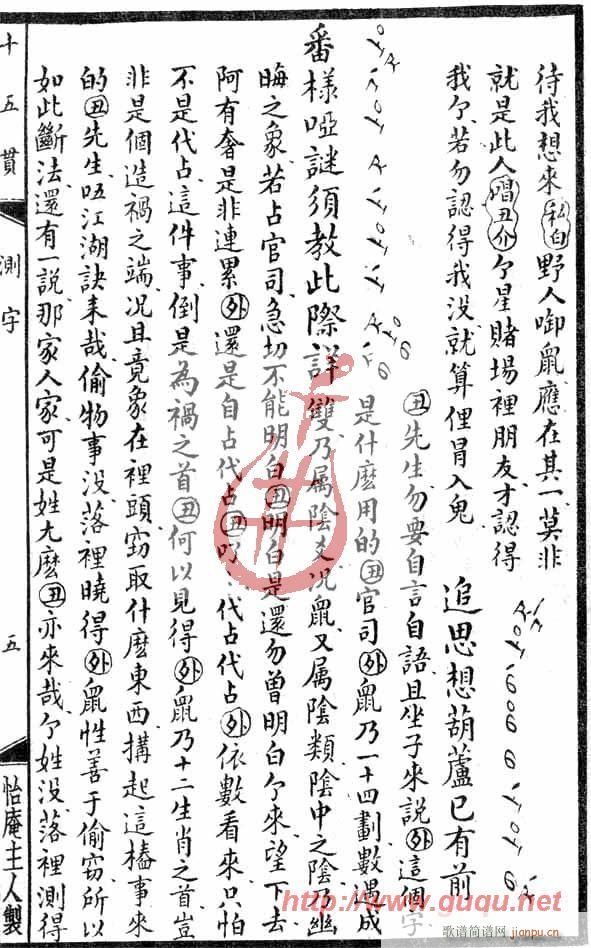 待我想來私白野人啣鼠應在其一莫非
就是此人唱丑介个星賭場裡朋友才認得
我个若勿認得我没就算俚冒入鬼
追思想葫蘆已有前
丑先生勿要自言自語且坐子來說外這個字
是什麽用的丑官司外鼠乃一十四劃數是成
番樣啞謎須教此際詳雙乃属陰爻况鼠又属陰類陰中之陰乃幽
晦之象若占官司急切不能明白丑明白是還勿曾明白个來望下去
阿有奢是非連累外還是自占代占丑叮、代占代占外依數看來只怕
不是代占這件事倒是為禍之首丑何以見得外鼠乃十二生肖之首豈
非是個造禍之端况且竟象在裡頭竊取什麽東西搆起這樁事來
的丑先生㕶江湖訣耒哉偷物事没落裡曉得外鼠性善于偷竊所以
如此斷法還有一說那家人家可是姓尤麽丑亦來哉个姓没落裡測得
十五貫
測字
五
怡庵主人製
http://www.guqu.net
歌谱简谱网
jianpu.cn